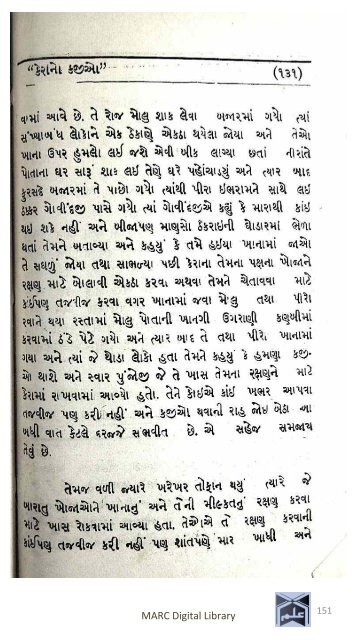 “કેરાનો કજીઓ” (૧૩૧)
વામાં આવે છે. તે રોજ મોલુ શાક લેવા બજારમાં ગયો ત્યાં
સંખ્યાબંધ લોકોને એક ઠેકાણે એકઠા થયેલા જોયા અને તેઓ
ખાના ઉપર હુમલો લઈ જશે એવી બીક લાગ્યા છતાં નીરાંતે
પોતાના ઘર સારૂં શાક લઈ તેણે ઘરે પહોંચાડયું અને ત્યાર બાદ
કુરસદે બજારમાં તે પાછો ગયો ત્યાંથી પીરા ઇભરામને સાથે લઈ
ઠક્કર ગોવીંદજી પાસે ગયો ત્યાં ગોવીંદજીએ કહ્યું કે મારાથી કાંઈ
થઇ શકે નહીં અને બીજાપણ માણસો ઠકરાઇની ઘોડારમાં ભેળા
થતાં તેમને બતાવ્યા અને કહયું કે તમે હઈયા ખાનામાં જાઓ
તે સઘળું જોયા તથા સાંભળ્યા પછી કેરાના તેમના પક્ષના ખોજાને
રક્ષણ માટે બોલાવી એકઠા કરવા અથવા તેમને ચેતાવવા માટે
કંઈપણ તજવીજ કરવા વગર ખાનામાં જવા મોલુ તથા પીરો
રવાને થયા રસ્તામાં મોલુ પોતાની ખાનગી ઉગરાણી કણબીમાં
કરવામાં ઠંડે પેટે ગયો અને ત્યાર બાદ તે તથા પીરો ખાનામાં
ગયા અને ત્યાં જે થોડા લોકો હતા તેમને કહયું કે હમણા કજી-
ઓ થાશે અને સ્વાર પુંજોજી જે તે ખાસ તેમના રક્ષણને માટે
કેરામાં રાખવામાં આવ્યો હતો. તેને કોઈએ કાંઈ ખબર આપવા
તજવીજ પણ કરી નહીં અને કજીઓ થવાની રાહ જોઇ બેઠા આ
બધી વાત કેટલે દરજ્જે સંભવીત છે. એ સહેજ સમજાય
તેવું છે.
તેમજ વળી જ્યારે ખરેખર તોફાન થયું ત્યારે જે
બારોતુ ખોજાઓને ખાનાનું અને તેની મીલ્કતનું રક્ષણ કરવા
માટે ખાસ રોકવામાં આવ્યા હતા. તેઓએ તે રક્ષણ કરવાની
કાંઈપણ તજવીજ કરી નહીં પણ શાંતપણે માર ખાધો અને
MARC Digital Library
151